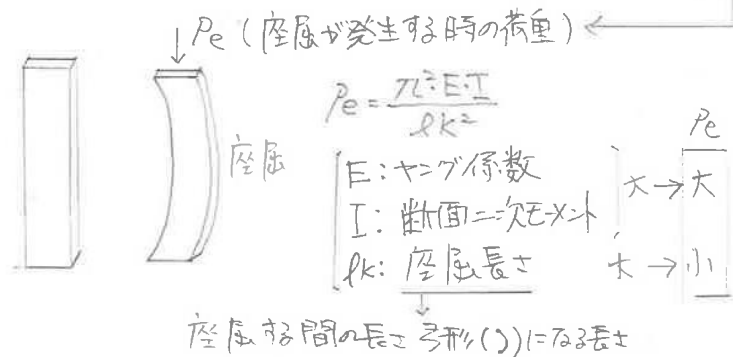 Pe (座屈が発生する時の荷重)
座屈
Pe = π²・E・I / ℓk²
Pe
E: ヤング係数
I: 断面二次モーメント
大 → 大
ℓk: 座屈長さ
大 → 小
座屈する間の長さ 弓形())になる長さ